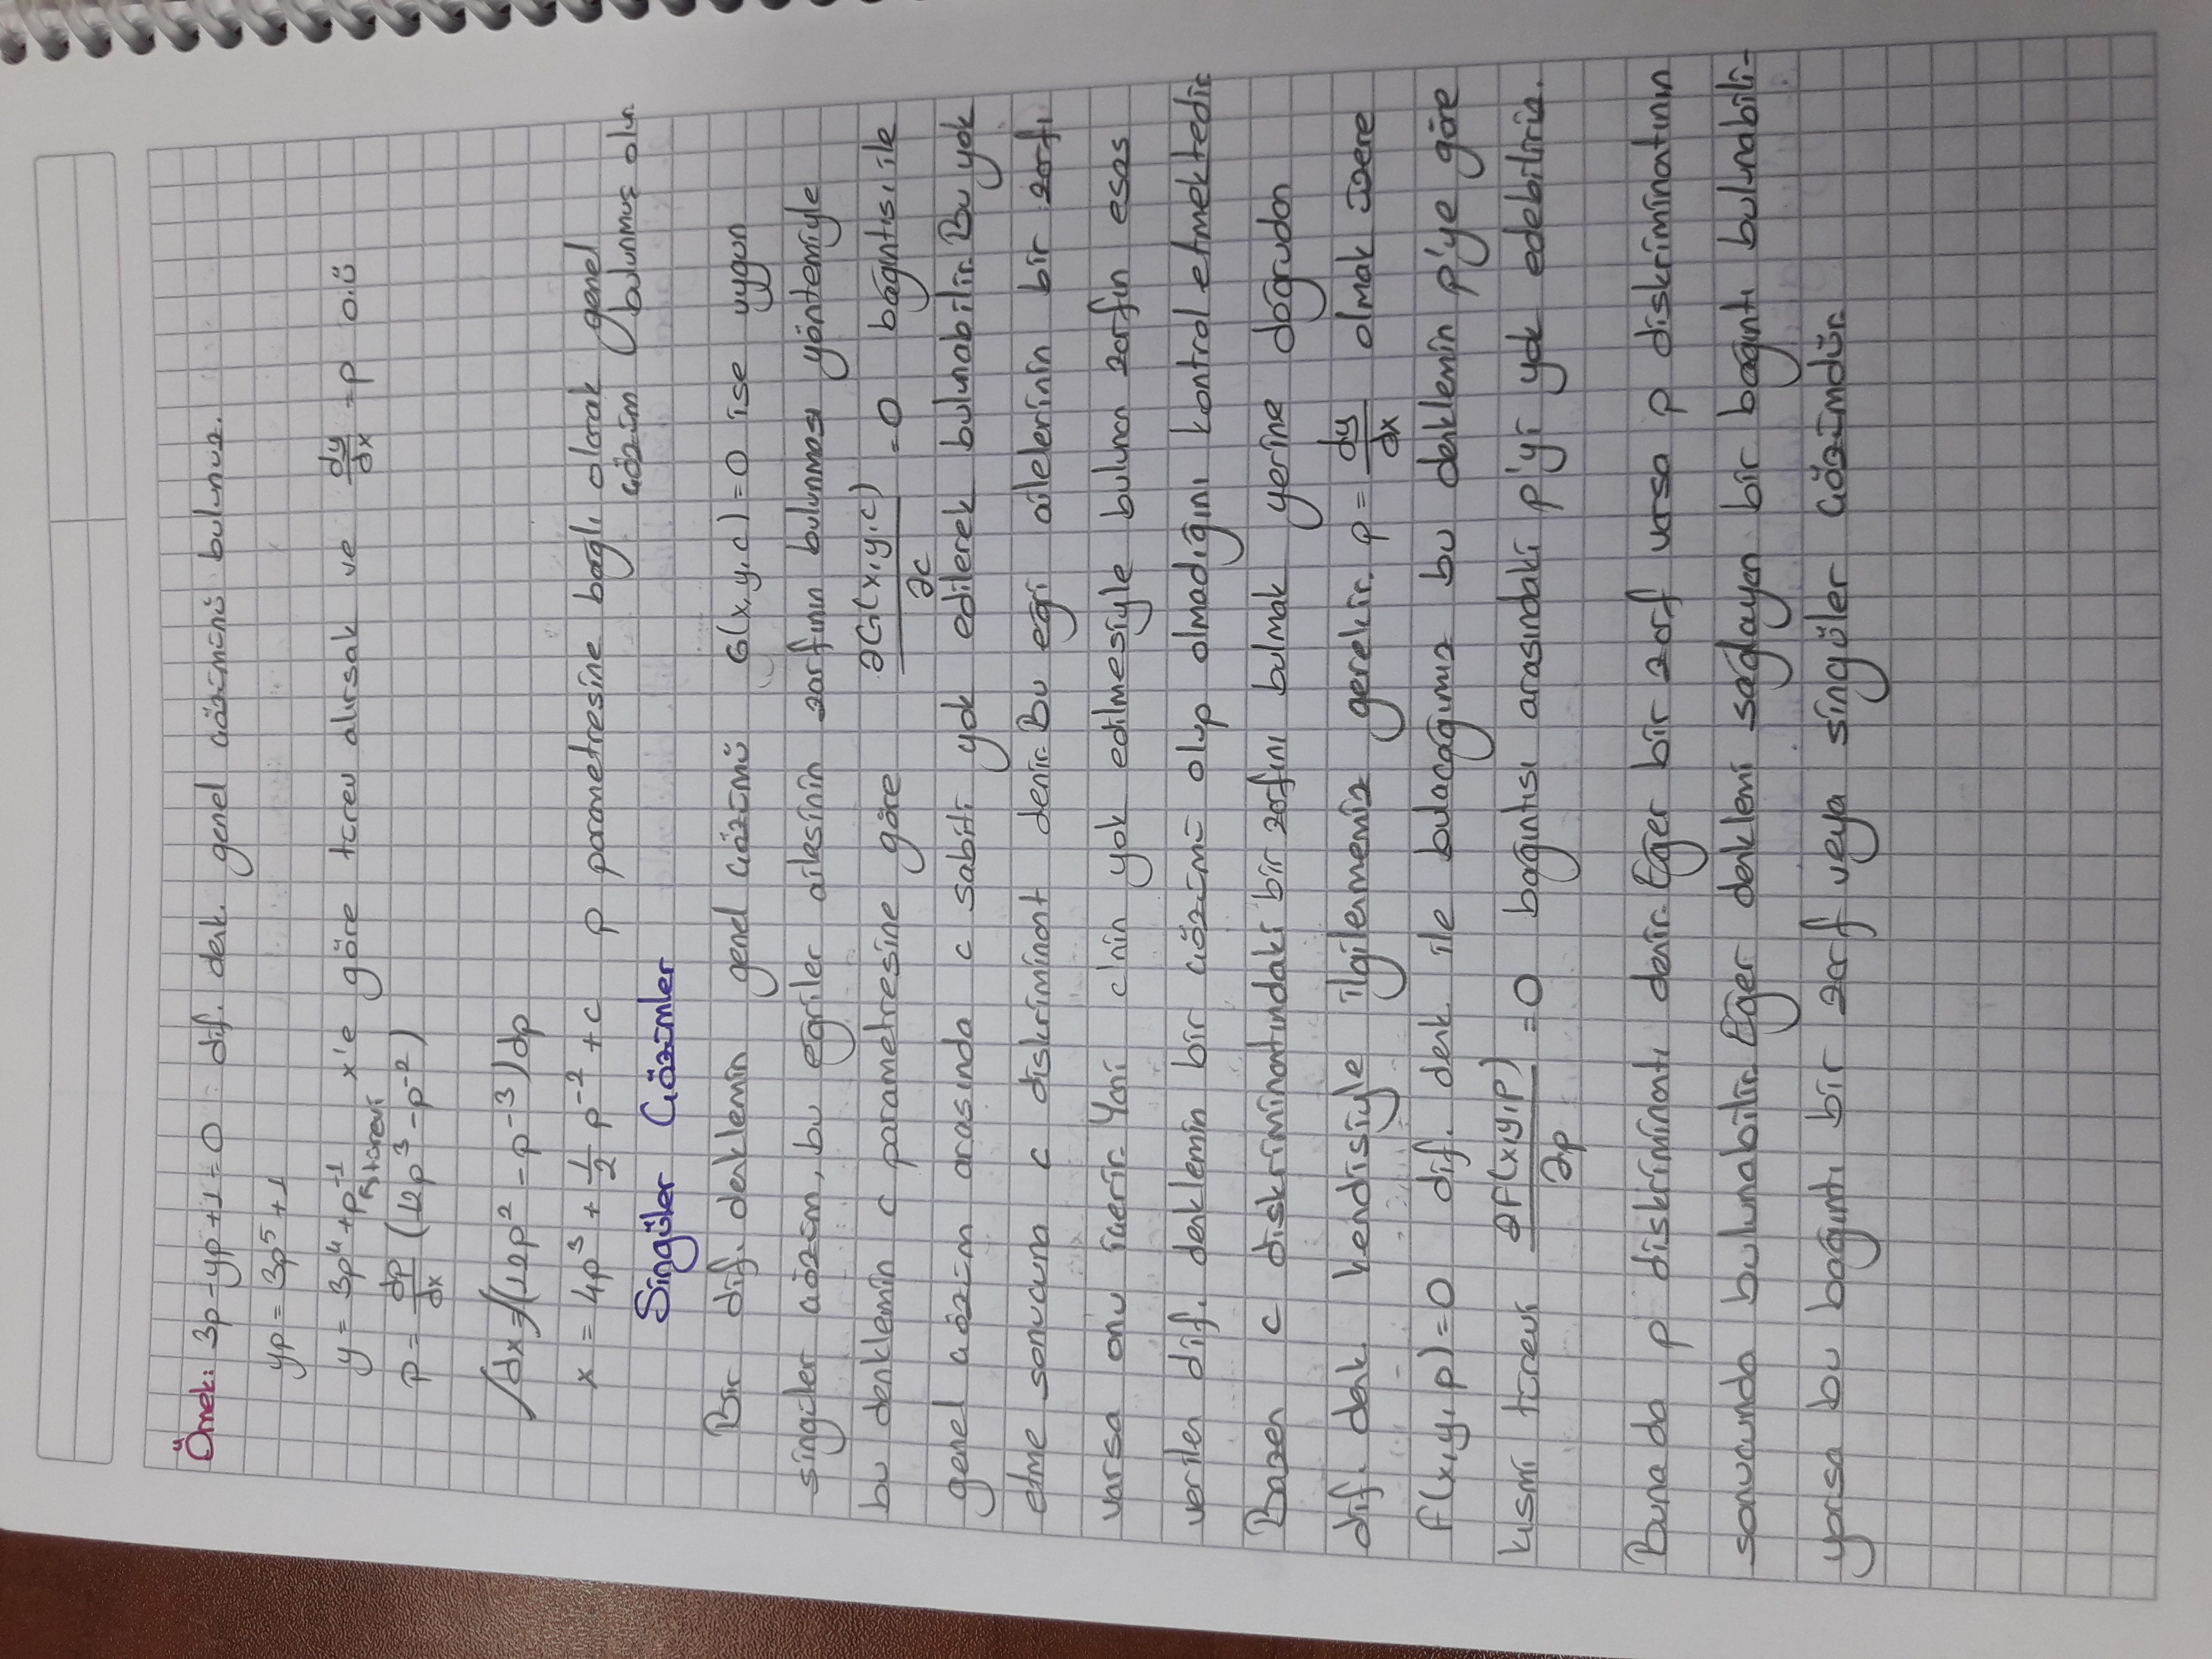 Örnek: 3p-yp+1=0 dif. denk. genel çözümünü bulunuz.
yp = 3p⁵+1
y = 3p⁴+p⁻¹ x'e göre türev alırsak ve dy/dx = p o.ü
↳türevi
p = dp/dx (12p³-p⁻²)
∫dx=∫(12p²-p⁻³)dp
x = 4p³ + 1/2 p⁻² + c p parametresine bağlı olarak genel
çözüm bulunmuş olur.
Singüler Çözümler
Bir dif. denklemin genel çözümü G(x,y,c)=0 ise uygun
singüler çözüm, bu eğriler ailesinin zarfının bulunması yöntemiyle
bu denklemin c parametresine göre ∂G(x,y,c)/∂c = 0 bağıntısı ile
genel çözüm arasında c sabiti yok edilerek bulunabilir. Bu yok
etme sonucuna c diskriminant denir. Bu eğri ailelerinin bir zarfı
varsa onu içerir. Yani c'nin yok edilmesiyle bulunan zarfın esas
verilen dif. denklemin bir çözümü olup olmadığını kontrol etmektedir
Bazen c diskriminantındaki bir zarfını bulmak yerine doğrudan
dif. denk. kendisiyle ilgilenmemiz gerekir. p = dy/dx olmak üzere
f(x,y,p)=0 dif. denk. ile bulacağımız bu denklemin p'ye göre
kısmi türevi ∂F(x,y,p)/∂p = 0 bağıntısı arasındaki p'yi yok edebiliriz.
Buna da p diskriminantı denir. Eğer bir zarf varsa p diskriminatının
sonucunda bulunabilir. Eğer denklemi sağlayan bir bağıntı bulunabili-
yorsa bu bağıntı bir zarf veya singüler çözümdür.